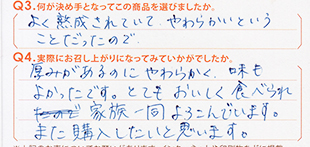 Q3.何が決め手となってこの商品を選びましたか。
よく熟成されていて、やわらかいという
ことだったので。
Q4.実際にお召し上がりになってみていかがでしたか。
厚みがあるのにやわらかく、味も
よかったです。とてもおいしく食べられ
家族一同よろこんでいます。
また購入したいと思います。